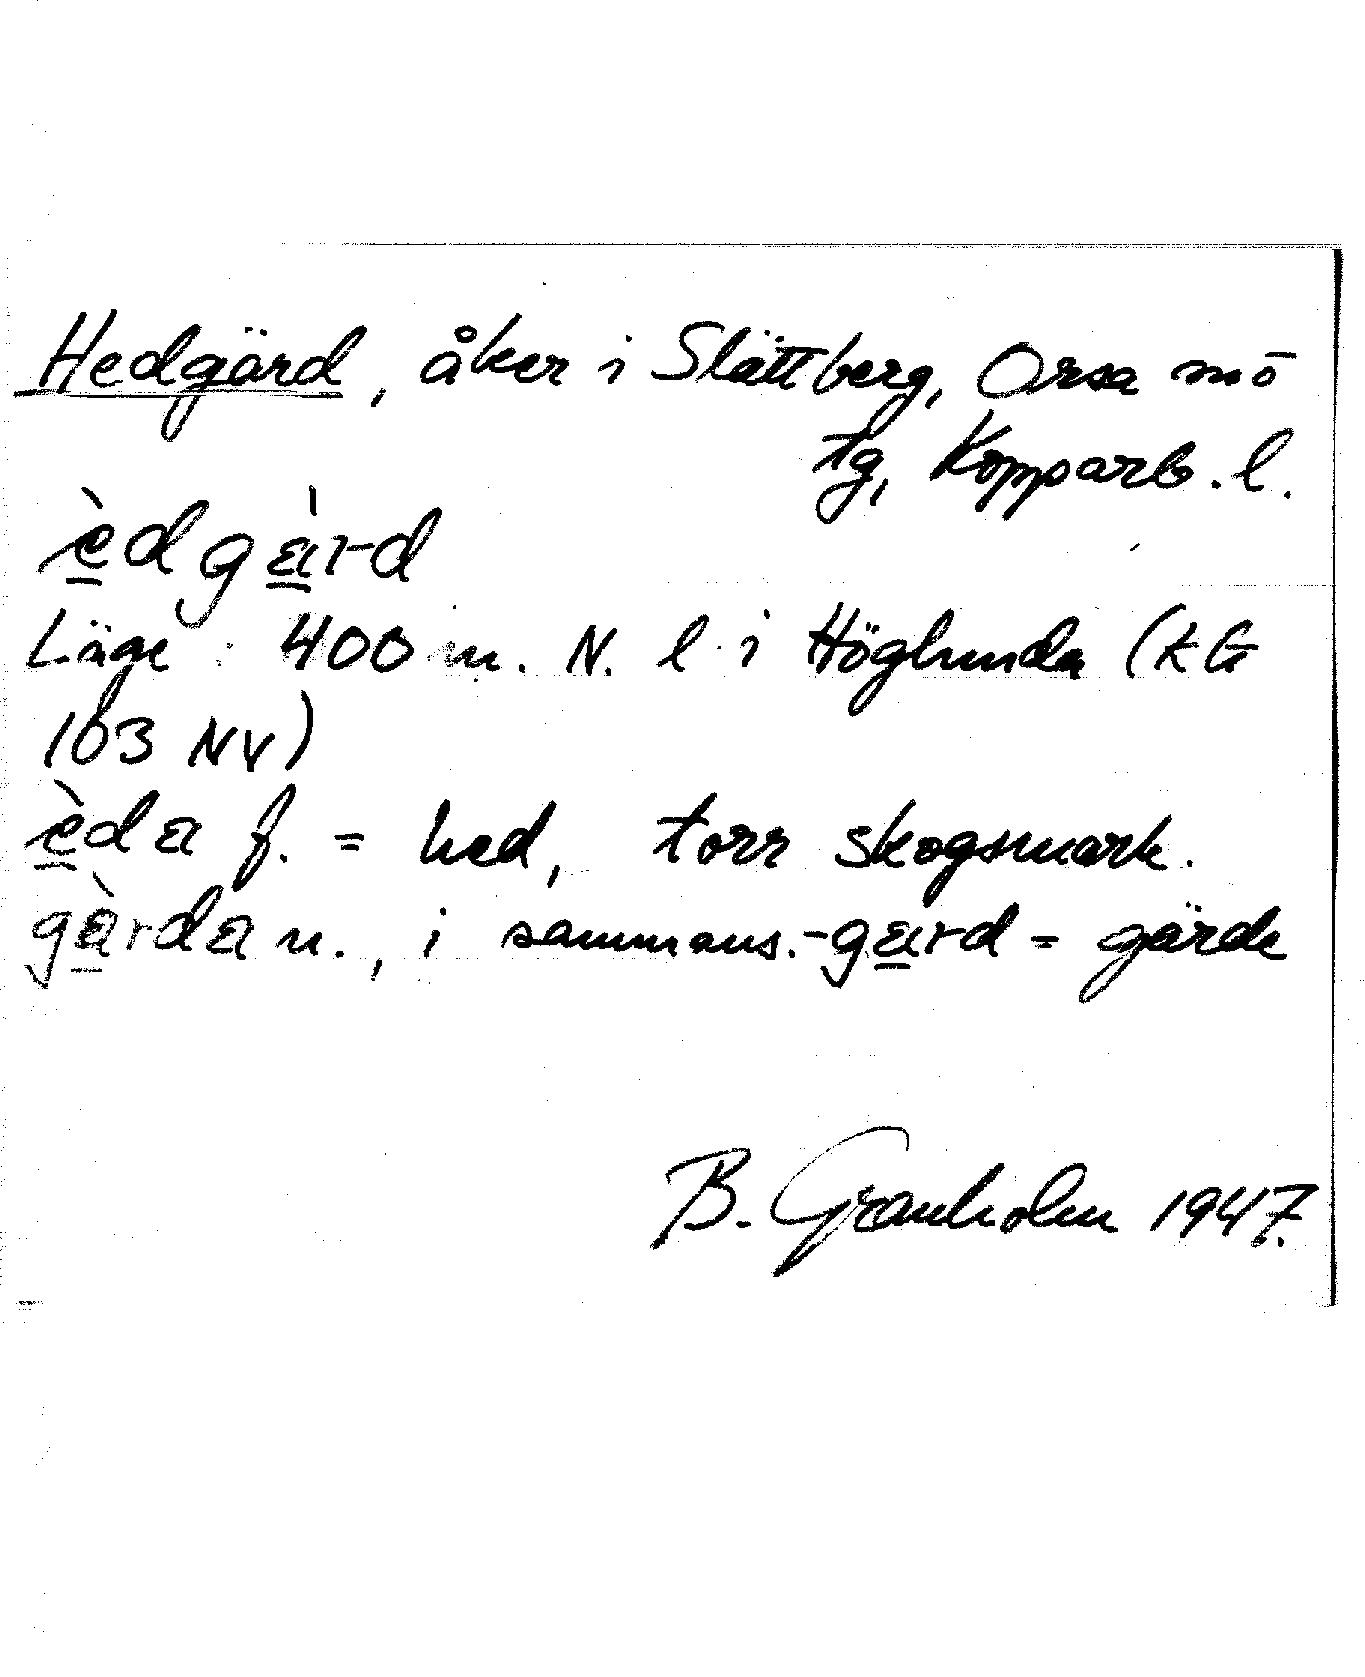 Hedgärd, åker i Slättberg, Orsa snō
tg, Kopparb. l.
èdgàrd
Läge: 400 m. N. l. i Höglunda (KG
103 NV)
èda f. = hed, torr skogsmark.
gàrda n., i sammans. -gard = gärde
B. Granholm 1947.